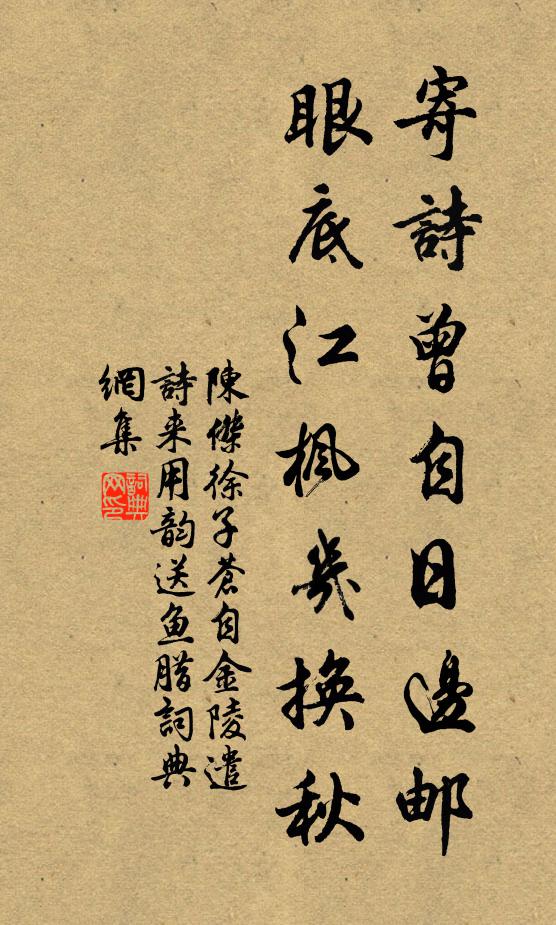 寄詩曾自日邊邮
眼底江楓幾換秋
陳傑徐子蒼自金陵遣
詩来用韵送魚腊詞典
網集
詞典
网印